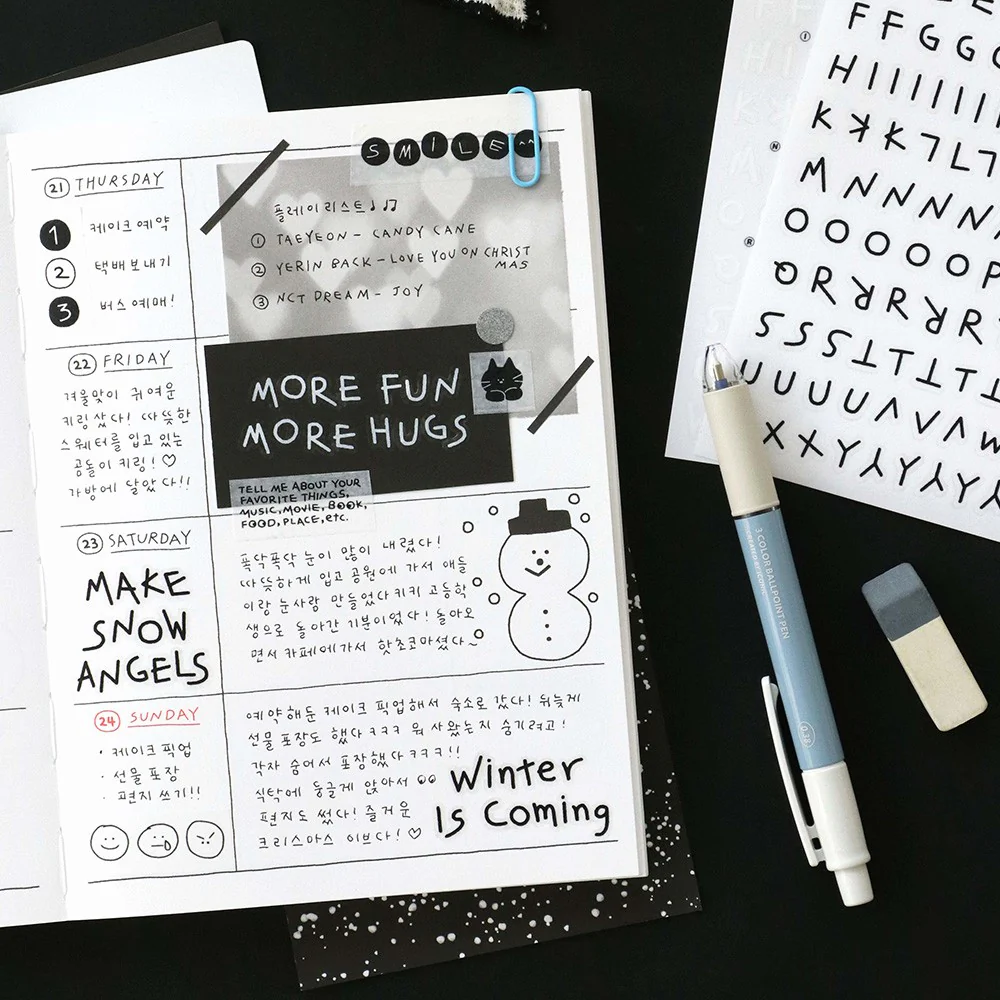 SMILE ^^
21 THURSDAY
1 케이크 예약
2 택배 보내기
3 버스 예매!
플레이리스트♩♫
① TAEYEON - CANDY CANE
② YERIN BACK - LOVE YOU ON CHRIST
MAS
③ NCT DREAM - JOY
22 FRIDAY
겨울맞이 귀여운
키링 샀다! 따뜻한
스웨터를 입고 있는
곰돌이 키링! ♡
가방에 달았다!!
MORE FUN
MORE HUGS
TELL ME ABOUT YOUR
FAVORITE THINGS,
MUSIC, MOVIE, BOOK,
FOOD, PLACE, etc.
23 SATURDAY
MAKE
SNOW
ANGELS
폭닥폭닥 눈이 많이 내렸다!
따뜻하게 입고 공원에 가서 애들
이랑 눈사람 만들었다 키키 고등학
생으로 돌아간 기분이었다! 돌아오
면서 카페에 가서 핫초코 마셨다~
24 SUNDAY
· 케이크 픽업
· 선물 포장
· 편지 쓰기!!
예약해둔 케이크 픽업해서 숙소로 갔다! 뒤늦게
선물 포장도 했다 ㅋㅋㅋ 뭐 사왔는지 숨기려고!
각자 숨어서 포장했다 ㅋㅋㅋ!!
식탁에 둥글게 앉아서
편지도 썼다! 즐거운
크리스마스 이브다! ♡
Winter
Is Coming
FFGGG
HIIIIIII
KKKLL
MNNNN
OOOOOP
QRRRR
SSSTTT
UUUUVVW
XXYYYY
3 COLOR BALLPOINT PEN
CREATED BY ICONIC
0.38